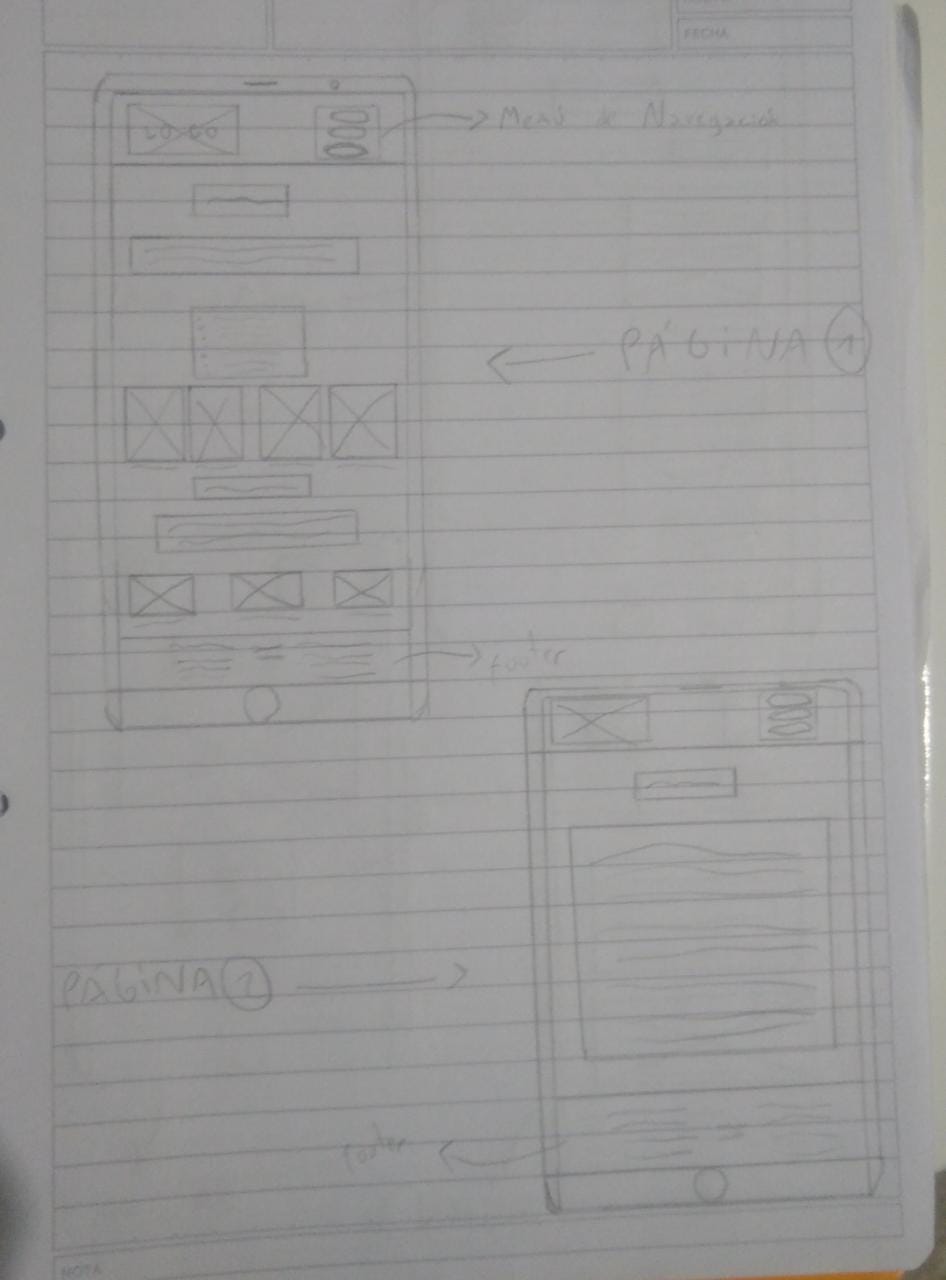 FECHA
LOGO
Menú de Navegación
PÁGINA 1
footer
PAGINA 2
footer
NOTA